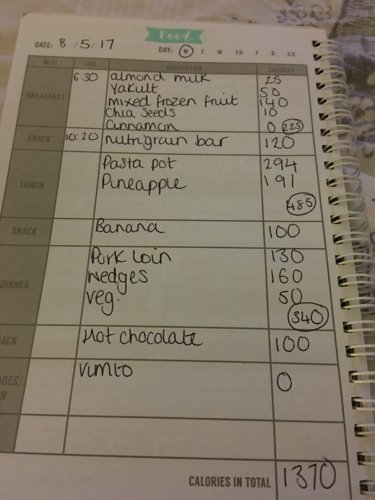 Food
DATE: 8/5/17 DAY: M T W TH F S SU
MEAL TIME DESCRIPTION CALORIES
BREAKFAST 6:30 almond milk 25
Yakult 50
mixed frozen fruit 140
Chia Seeds 10
Cinnamon 0 225
SNACK 10:20 nutrigrain bar 120
LUNCH Pasta pot 294
Pineapple 191
485
SNACK Banana 100
DINNER Pork loin 130
wedges 160
veg. 50
340
ACK Hot chocolate 100
AGES/ Vimto 0
ER
CALORIES IN TOTAL 1370